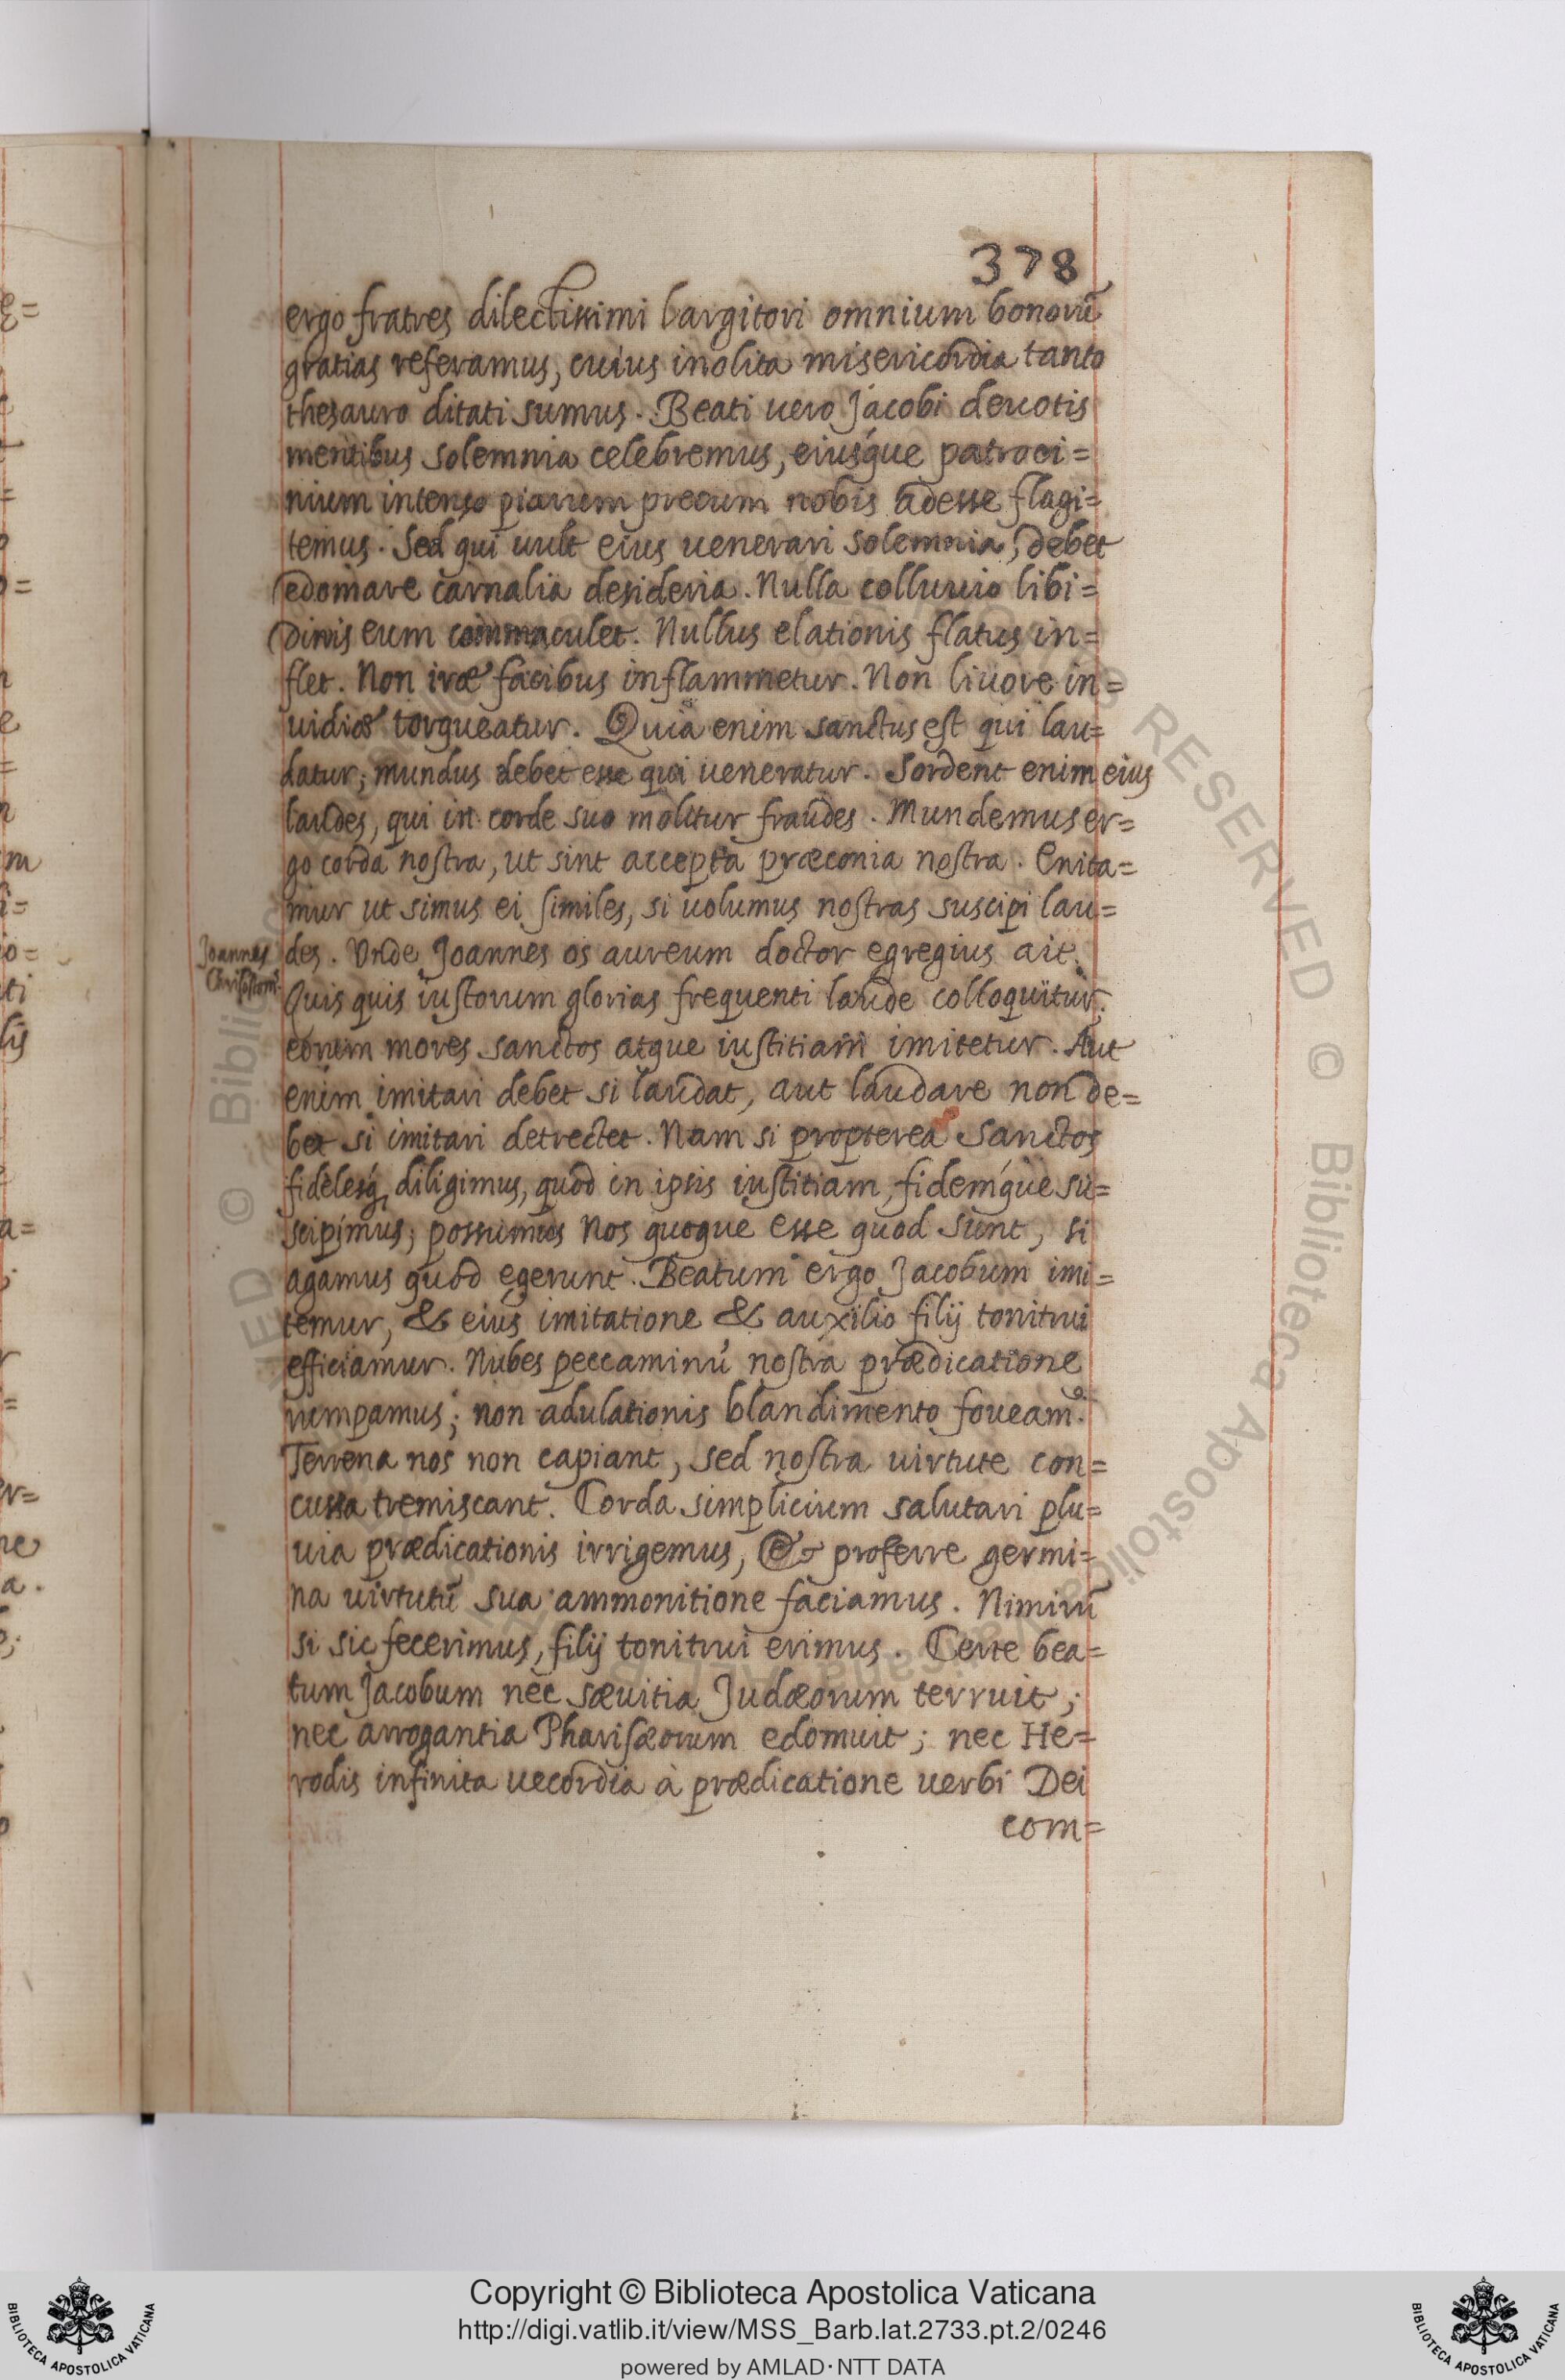 378
ergo fratres dilectissimi largitori omnium bonorũ
gratias referamus, cuius inolita misericordia tanto
thesauro ditati sumus. Beati uero Jacobi deuotis
mentibus solemnia celebremus, eiusq́ue patroci=
nium intenso piarum precum nobis adesse flagi=
temus. Sed qui uult eius uenerari solemnia, debet
edomare carnalia desideria. Nulla colluuio libi=
dinis eum commaculet. Nullus elationis flatus in=
flet. Non iræ facibus inflammetur. Non liuore in=
uidiæ torqueatur. Quia enim sanctus est qui lau=
datur; mundus debet esse qui ueneratur. Sordent enim eius
laudes, qui in corde suo molitur fraudes. Mundemus er=
go corda nostra, ut sint accepta præconia nostra. Enita=
mur ut simus ei similes, si uolumus nostras suscipi lau=
Joannes
Chrisostom.
des. Vnde Joannes os aureum doctor egregius ait.
Quis quis iustorum glorias frequenti laude colloquitur,
eorum mores sanctos atque iustitiam imitetur. Aut
enim imitari debet si laudat, aut laudare non de=
bet si imitari detrectet. Nam si propterea Sanctos
fidelesq́; diligimus, quod in ipsis iustitiam, fidemq́ue su=
scipimus; possumus nos quoque esse quod sunt, si
agamus quod egerunt. Beatum ergo Jacobum imi=
temur, & eius imitatione & auxilio filij tonitrui
efficiamur. Nubes peccaminũ nostra prædicatione
rumpamus; non adulationis blandimento foueam⁹.
Terrena nos non capiant, sed nostra uirtute con=
cussa tremiscant. Corda simplicium salutari plu=
uia prædicationis irrigemus, & proferre germi=
na uirtutũ sua ammonitione faciamus. Nimirũ
si sic fecerimus, filij tonitrui erimus. Certe bea=
tum Jacobum nec sæuitia Judæorum terruit;
nec arrogantia Pharisæorum edomuit; nec He=
rodis infinita uecordia à prædicatione uerbi Dei
com=
Copyright © Biblioteca Apostolica Vaticana
http://digi.vatlib.it/view/MSS_Barb.lat.2733.pt.2/0246
powered by AMLAD·NTT DATA
BIBLIOTECA APOSTOLICA VATICANA
BIBLIOTECA APOSTOLICA VATICANA